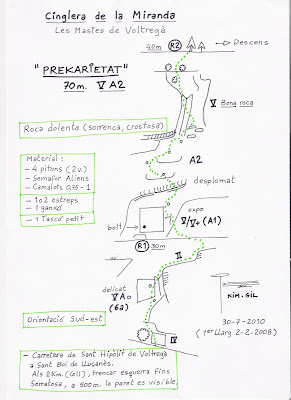 Cinglera de la Miranda
Les Masies de Voltregà
42m. R2 → Descens
"PREKARIETAT"
70m. V A2
V Bona roca
Roca dolenta (sorrenca, crostosa)
Material:
- 4 pitons (2 v.)
- Semàfor Aliens
- Camalots 0,75-1
- 1 o 2 estreps
- 1 ganxo
- 1 Tascó petit
A2
desplomat
expo
V/V+ (A1)
bolt
R1 30m
II
delicat
V A0
(6a)
KIM. GIL
Orientació Sud-est
30-7-2010
(1er Llarg 2-2-2008)
IV
- Carretera de Sant Hipòlit de Voltregà
a Sant Boi de Lluçanès.
Als 2Km. (Gil), trencar esquerra fins
Serratosa, a 500m. la paret es visible.